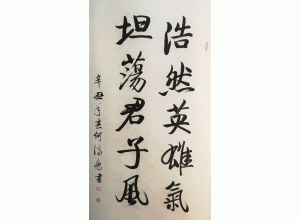 浩然英雄氣
坦蕩君子風
辛丑年
書